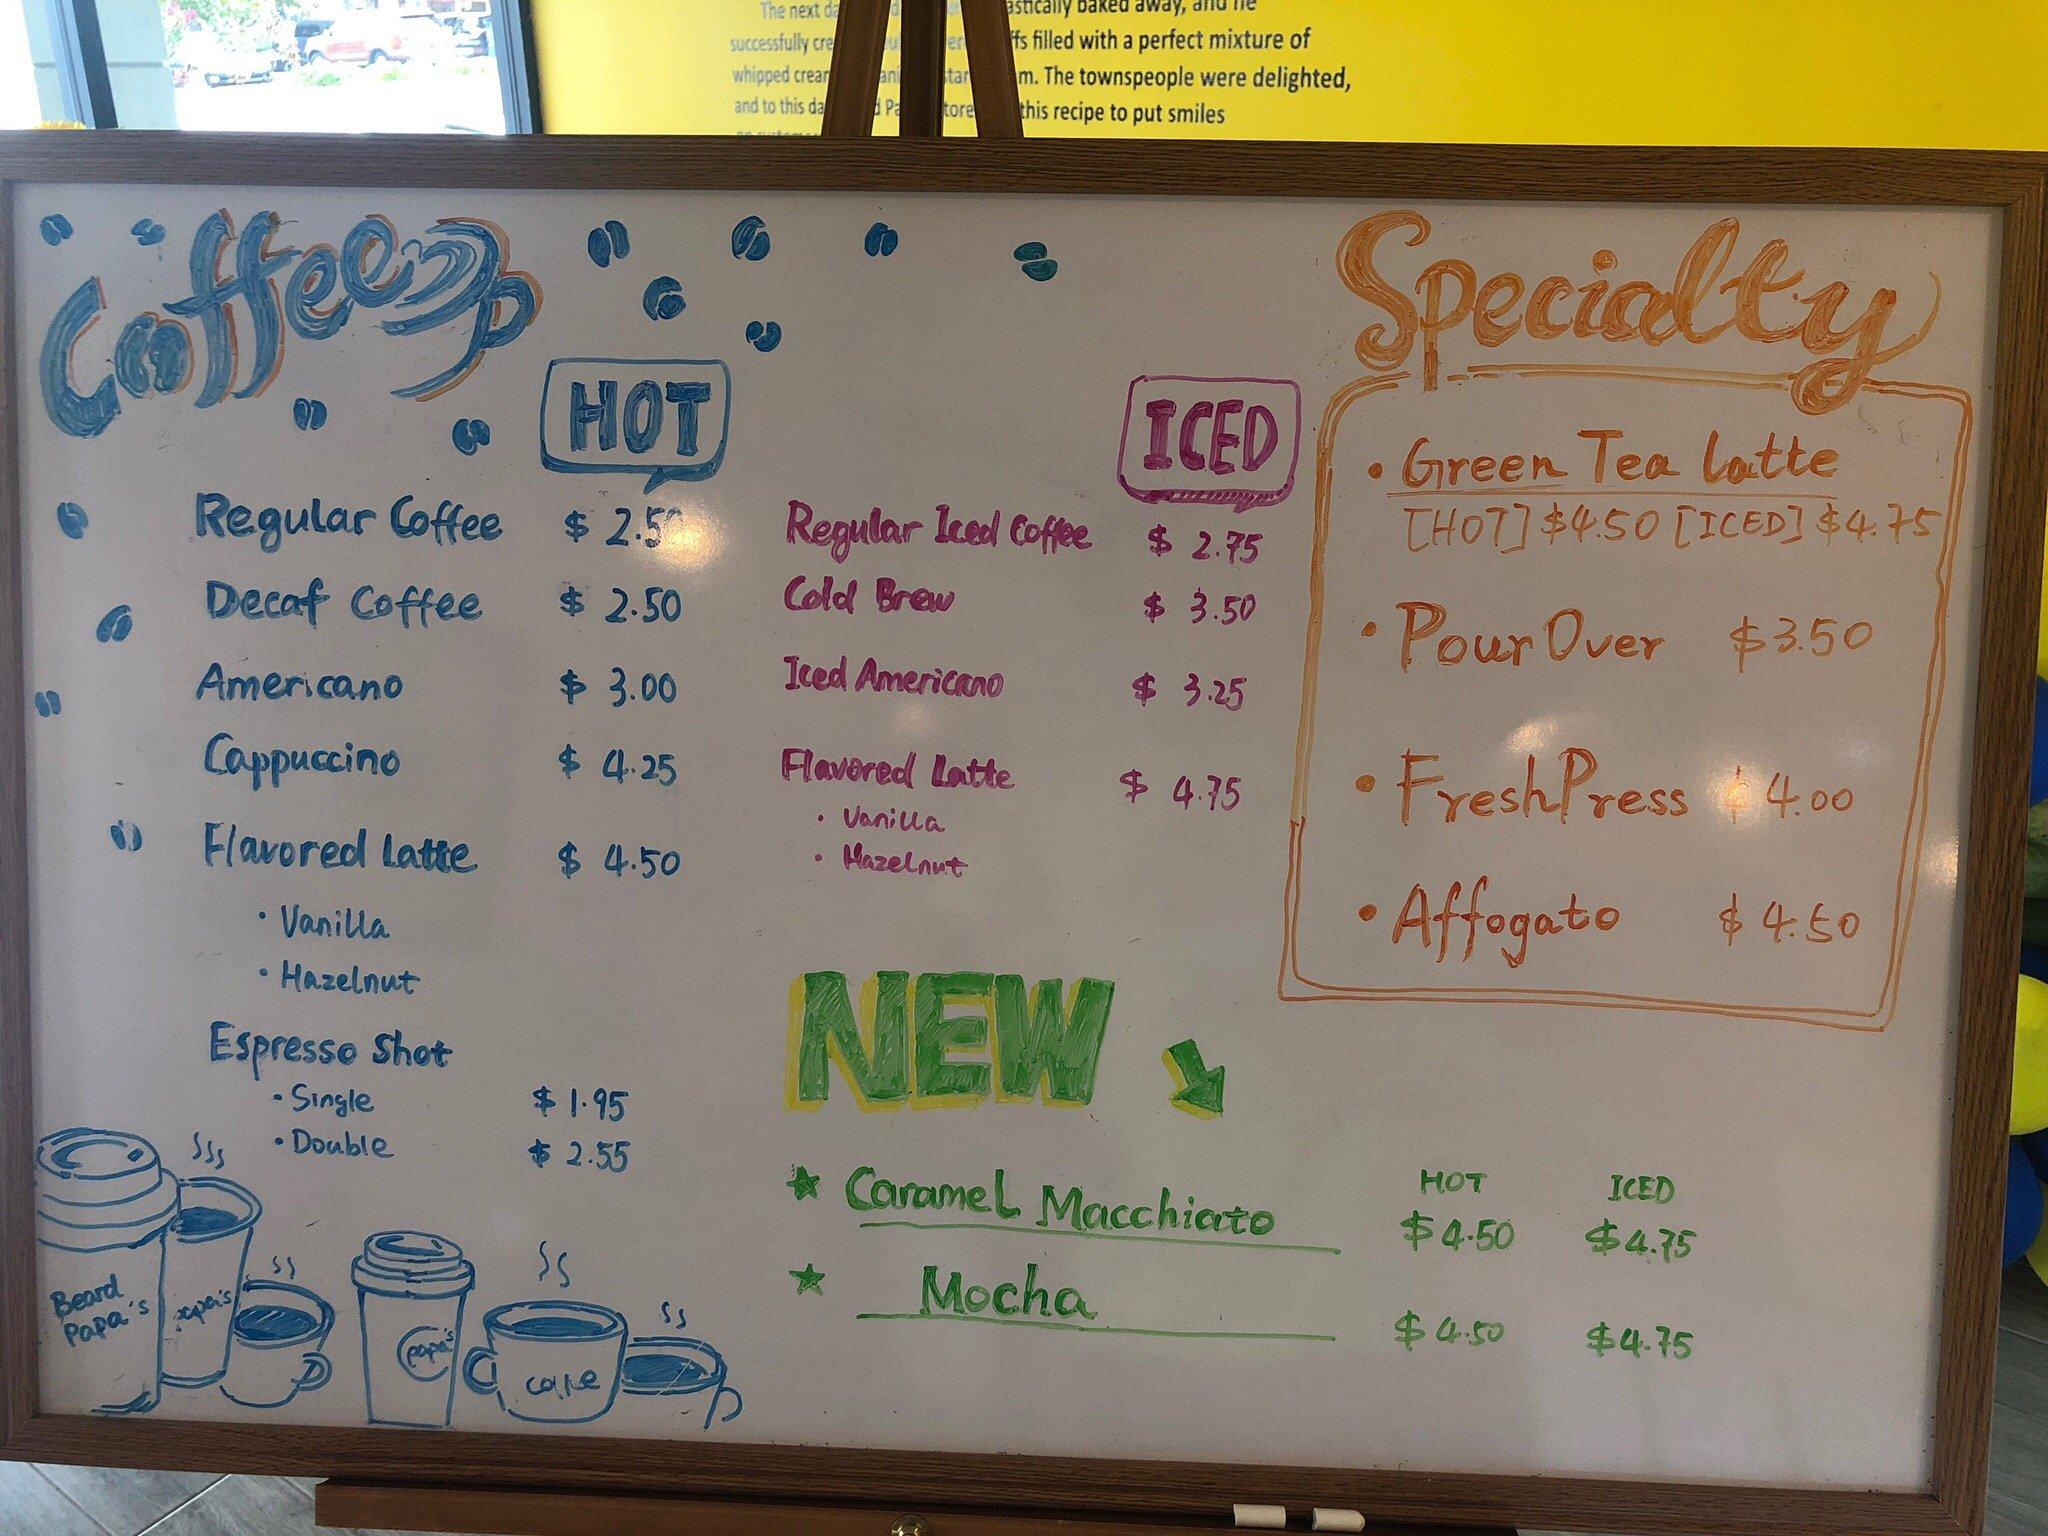 The next
astically baked away, and he
successfully
ffs filled with a perfect mixture of
whipped
m. The townspeople were delighted,
and to this
this recipe to put smiles
Coffee
HOT
Regular Coffee $ 2.50
Decaf Coffee $ 2.50
Americano $ 3.00
Cappuccino $ 4.25
Flavored Latte $ 4.50
• Vanilla
• Hazelnut
Espresso Shot
• Single $ 1.95
• Double $ 2.55
ICED
Regular Iced Coffee $ 2.75
Cold Brew $ 3.50
Iced Americano $ 3.25
Flavored Latte $ 4.75
• Vanilla
• Hazelnut
Specialty
• Green Tea Latte
[HOT] $4.50 [ICED] $4.75
• Pour Over $3.50
• FreshPress $4.00
• Affogato $4.50
NEW
HOT ICED
★ Caramel Macchiato $4.50 $4.75
★ Mocha $4.50 $4.75
Beard
Papa's
papa's
papa's
cafe